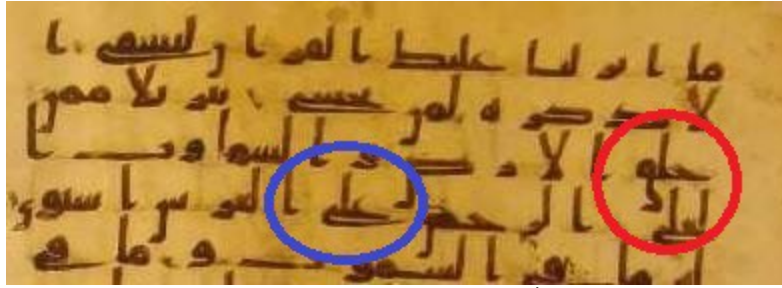 ما انزلنا عليك القرن لتشقى ا
لا تذكره لمن يخشى تنزيلا ممن
خلق الارض والسماوت ا
لعلى الرحمن على العرش استوى
له ما في السموت وما في